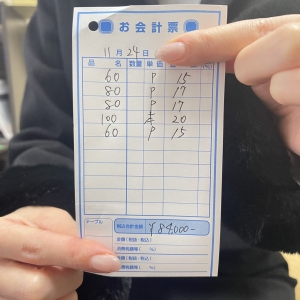 お会計票
11月24日
品 名 数量 単価
60 P 15
80 P 17
80 P 17
100 20
60 P 15
テーブル 税込合計金額 ¥84,000-
小計(税抜・税込)
消費税額等( %)
小計(税抜・税込)
消費税額等( %)